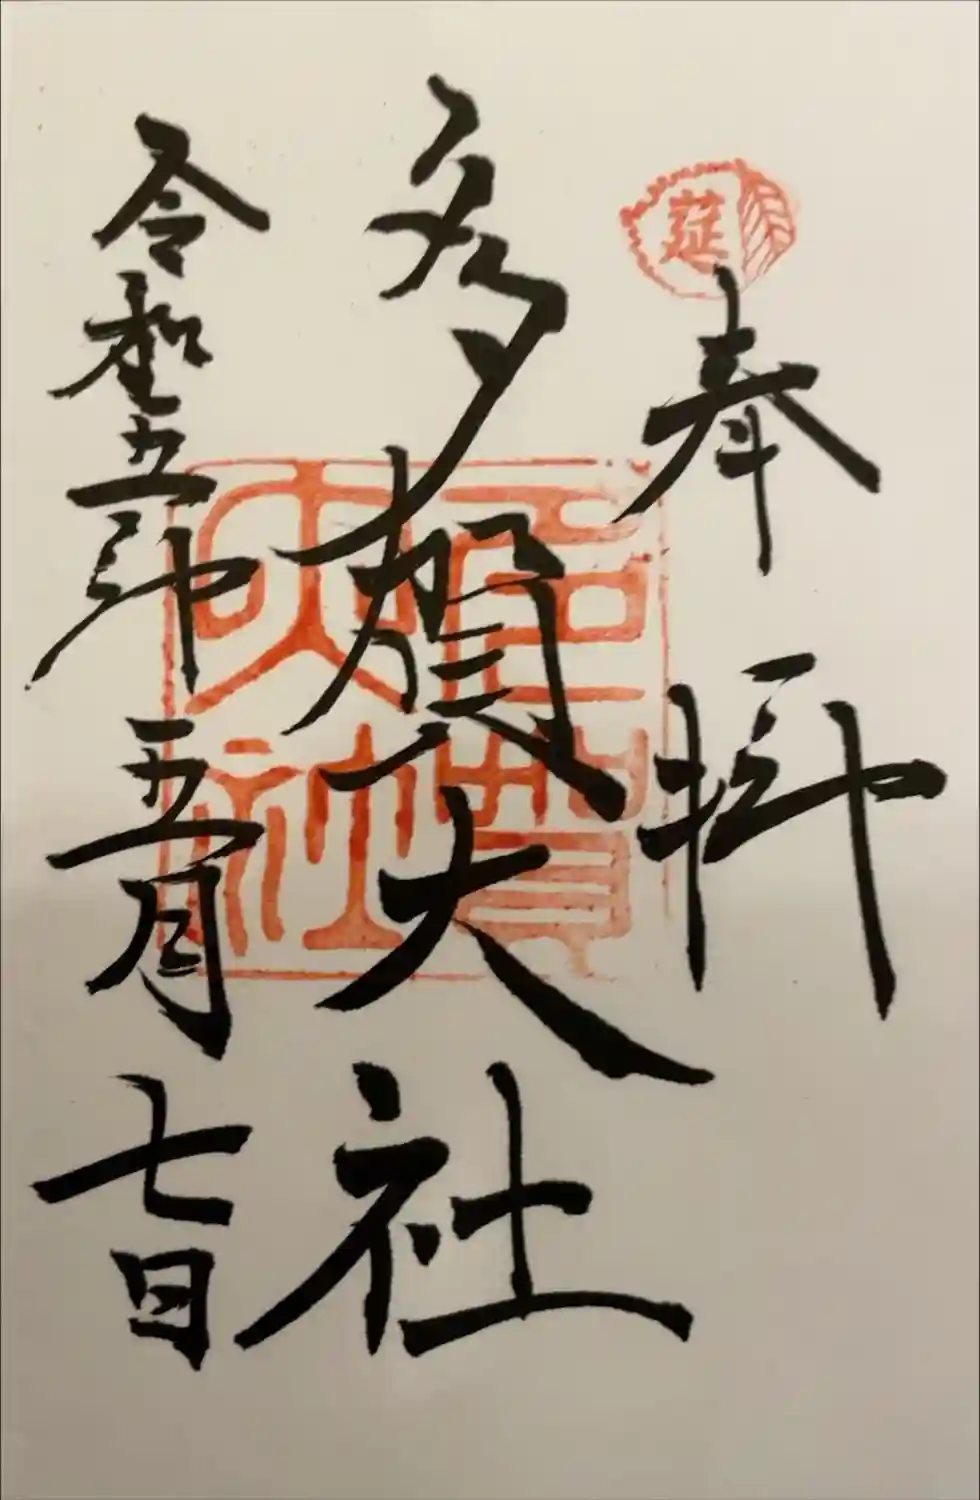 延
奉拝
多賀大社
多賀大社
令和五年五月七日